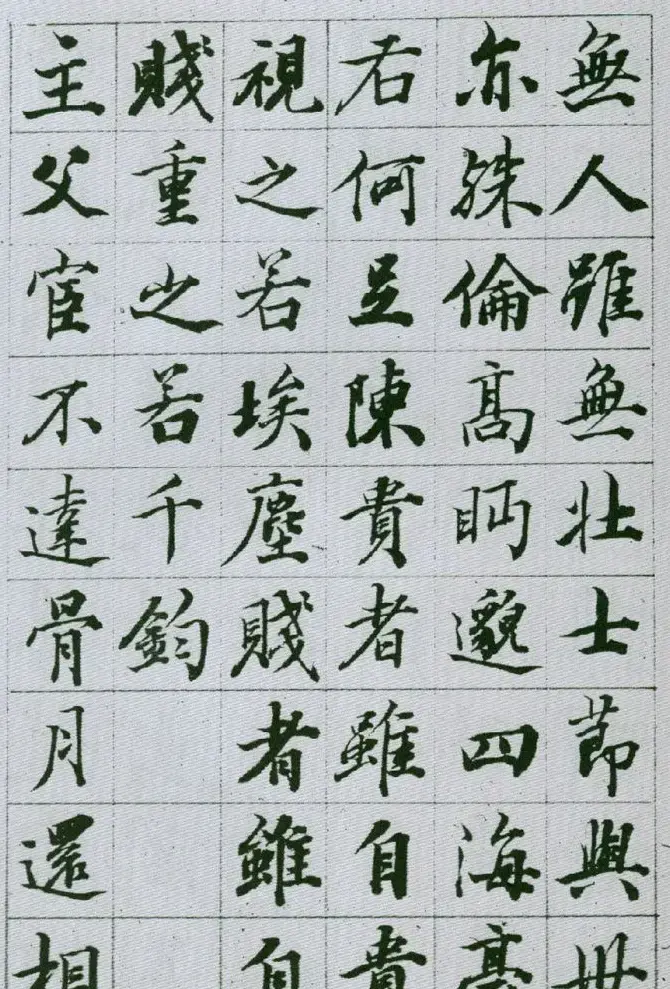 無人雖無壯士節與世
亦殊倫高眄邈四海豪
右何足陳貴者雖自貴
視之若埃塵賤者雖自
賤重之若千鈞
主父宦不達骨月還相